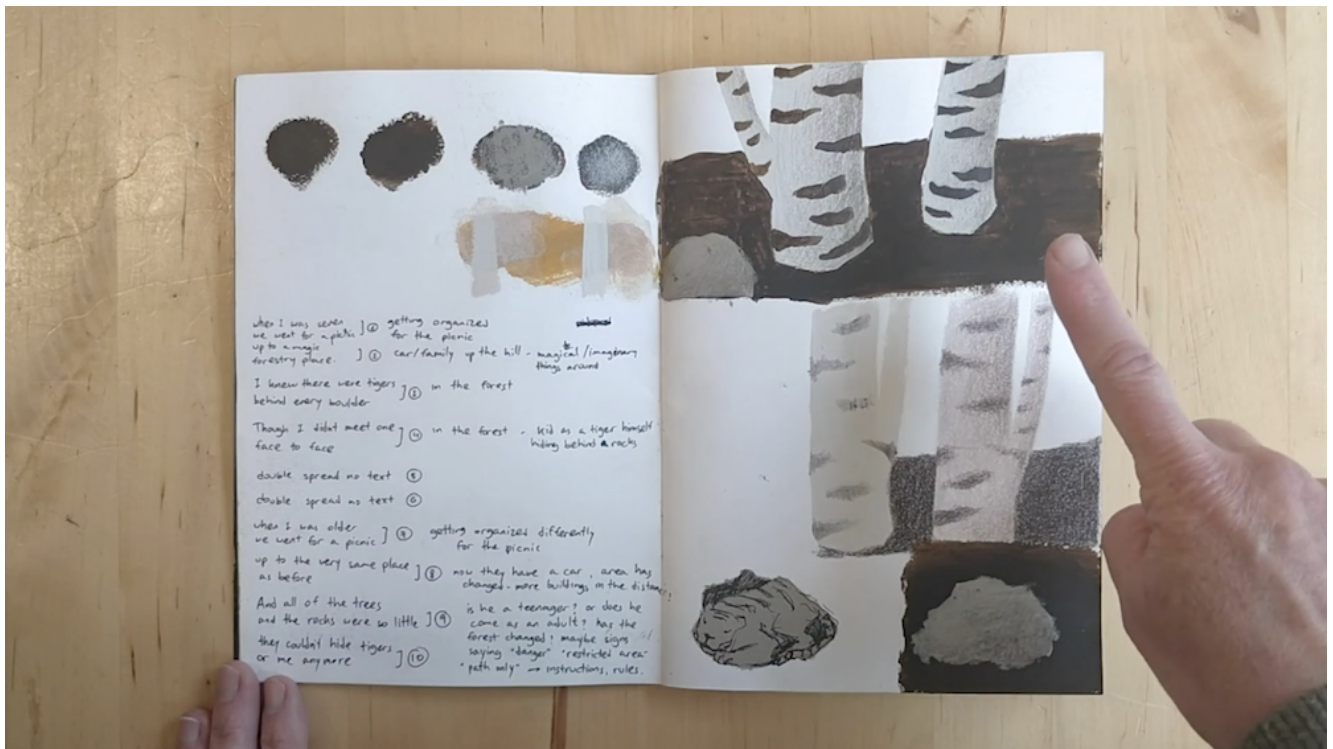 when I was seven
we went for a picnic
up to a magic
forestry place.
① getting organized
for the picnic
② car/family up the hill - magical/imaginary
things around
I knew there were tigers
behind every boulder
③ in the forest
Though I didn't meet one
face to face
④ in the forest - kid as a tiger himself
hiding behind rocks
double spread no text ⑤
double spread no text ⑥
when I was older
we went for a picnic
⑦ getting organized differently
for the picnic
up to the very same place
as before
⑧ now they have a car, area has
changed - more buildings in the distance
And all of the trees
and the rocks were so little
⑨ is he a teenager? or does he
come as an adult? has the
forest changed? maybe signs
saying "danger" "restricted area"
"path only" → instructions, rules.
they couldn't hide tigers
or me anymore
⑩